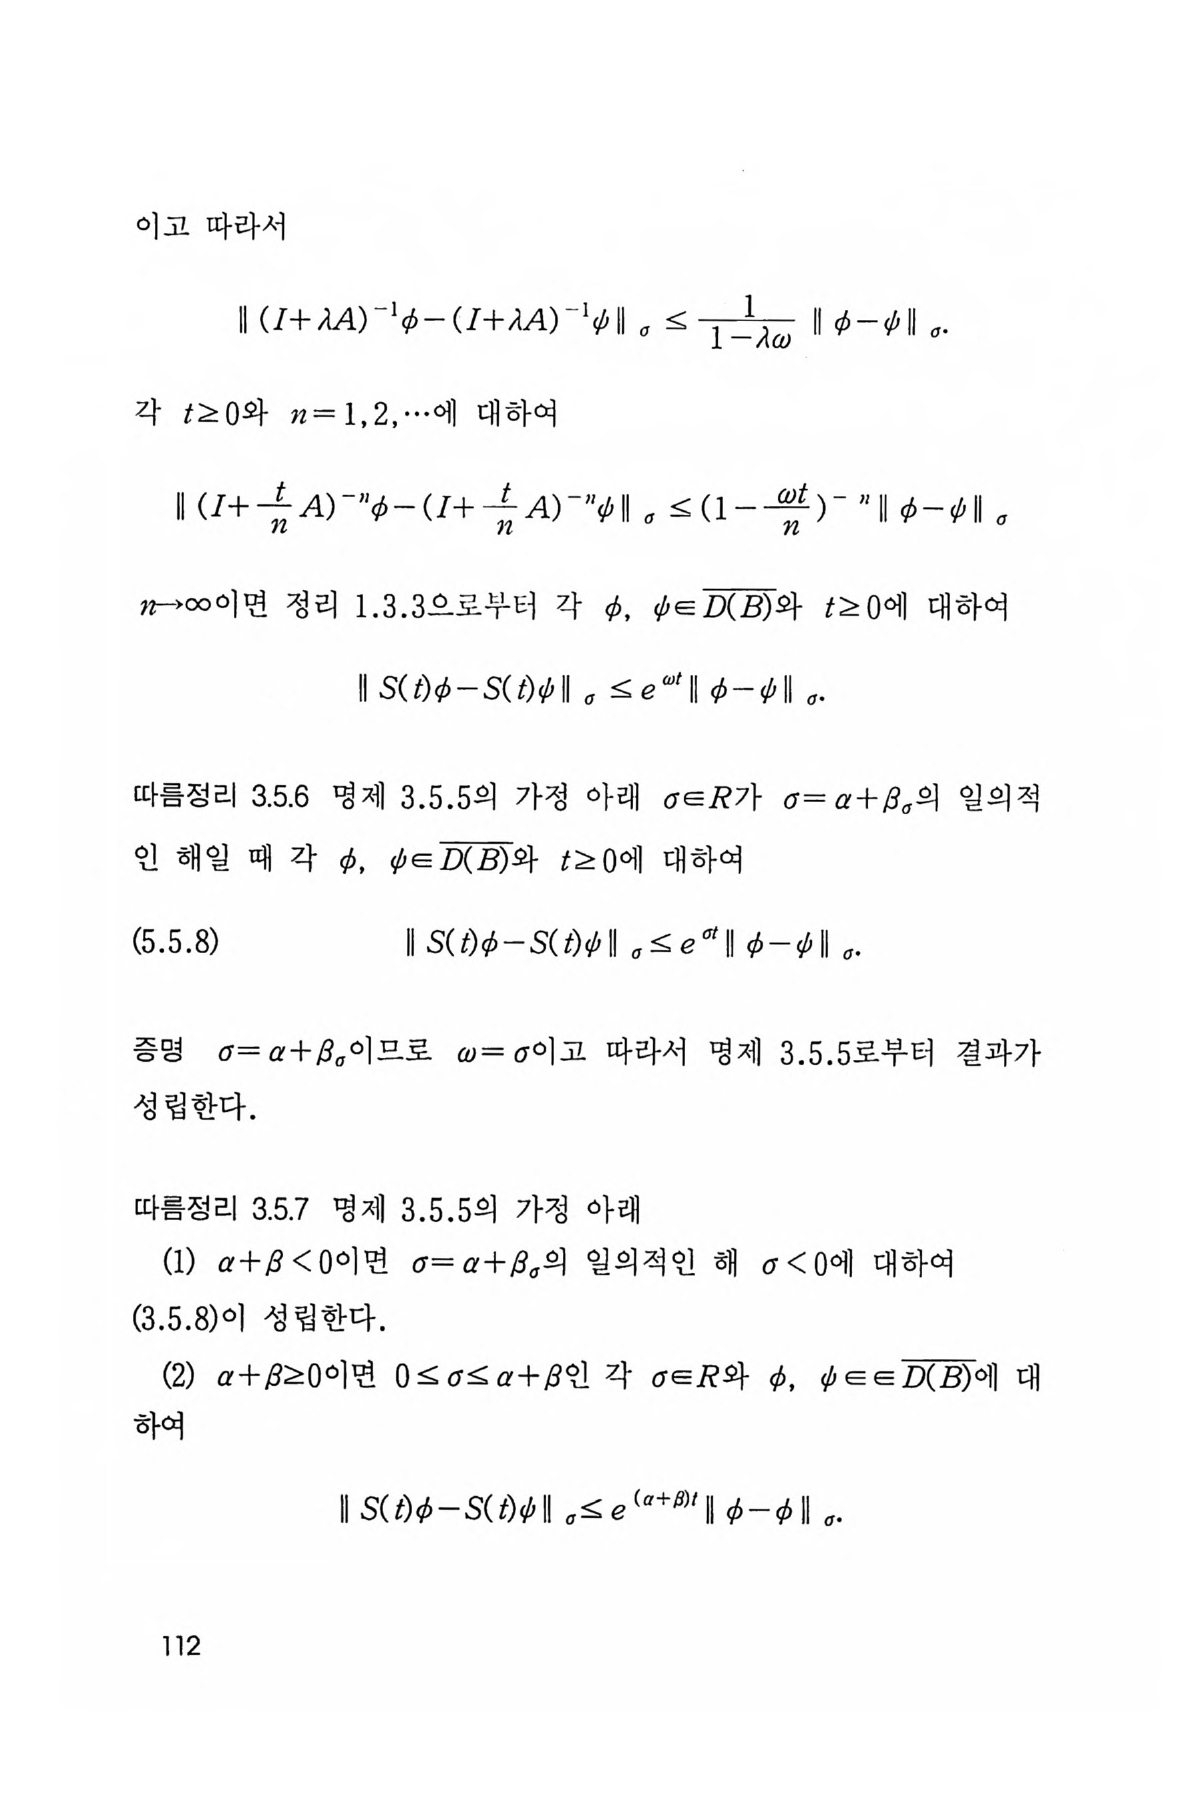 이고 따라서
‖(I+λA)⁻¹ϕ−(I+λA)⁻¹ψ‖_σ ≤ \frac{1}{1−λω} ‖ϕ−ψ‖_σ.
각 t≥0와 n=1,2,⋯에 대하여
‖(I+\frac{t}{n}A)⁻ⁿϕ−(I+\frac{t}{n}A)⁻ⁿψ‖_σ ≤(1−\frac{ωt}{n})⁻ⁿ‖ϕ−ψ‖_σ
n→∞이면 정리 1.3.3으로부터 각 ϕ, ψ∈\overline{D(B)}와 t≥0에 대하여
‖S(t)ϕ−S(t)ψ‖_σ ≤e^{ωt}‖ϕ−ψ‖_σ.
따름정리 3.5.6 명제 3.5.5의 가정 아래 σ∈R가 σ=α+β_σ의 일의적
인 해일 때 각 ϕ, ψ∈\overline{D(B)}와 t≥0에 대하여
(5.5.8) ‖S(t)ϕ−S(t)ψ‖_σ≤e^{σt}‖ϕ−ψ‖_σ.
증명 σ=α+β_σ이므로 ω=σ이고 따라서 명제 3.5.5로부터 결과가
성립한다.
따름정리 3.5.7 명제 3.5.5의 가정 아래
(1) α+β<0이면 σ=α+β_σ의 일의적인 해 σ<0에 대하여
(3.5.8)이 성립한다.
(2) α+β≥0이면 0≤σ≤α+β인 각 σ∈R와 ϕ, ψ∈∈\overline{D(B)}에 대
하여
‖S(t)ϕ−S(t)ψ‖_σ≤e^{(α+β)t}‖ϕ−ϕ‖_σ.
112